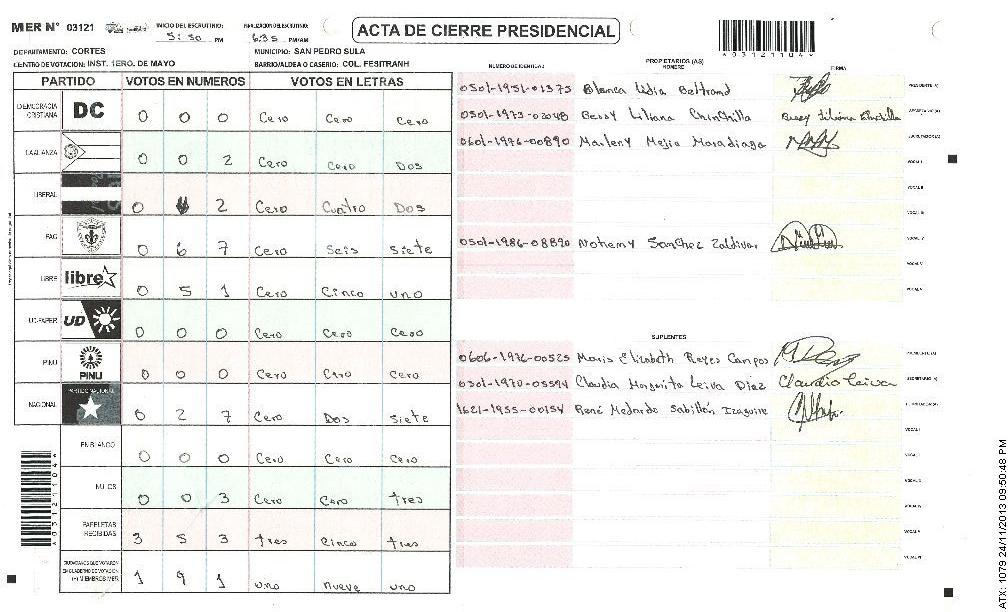 MER N° 03121
INICIO DEL ESCRUTINIO: 5:30 PM
FINALIZACION DEL ESCRUTINIO: 6:35 PM/AM
ACTA DE CIERRE PRESIDENCIAL
A03121104A
DEPARTAMENTO: CORTES
MUNICIPIO: SAN PEDRO SULA
CENTRO DE VOTACION: INST. 1ERO. DE MAYO
BARRIO/ALDEA O CASERIO: COL. FESITRANH
PARTIDO VOTOS EN NUMEROS VOTOS EN LETRAS
DEMOCRACIA CRISTIANA DC 0 0 0 Cero Cero Cero
LA ALIANZA 0 0 2 Cero Cero Dos
LIBERAL 0 4 2 Cero Cuatro Dos
PAC 0 6 7 Cero Seis Siete
LIBRE libre 0 5 1 Cero Cinco uno
UD-FAPER UD 0 0 0 Cero Cero Cero
PINU PINU 0 0 0 Cero Cero Cero
NACIONAL PARTIDO NACIONAL 0 2 7 Cero Dos Siete
EN BLANCO 0 0 0 Cero Cero Cero
NULOS 0 0 3 Cero Cero tres
PAPELETAS RECIBIDAS 3 5 3 tres Cinco tres
CIUDADANOS QUE VOTARON EN CUADERNO DE VOTACION (+) MIEMBROS MER 1 9 1 uno nueve uno
A03121104A
PROPIETARIOS (AS)
NUMERO DE IDENTIDAD NOMBRE FIRMA
0501-1951-01375 Blanca Lidia Beltrand PRESIDENTE (A)
0501-1973-02048 Bessy Liliana Chinchilla Bessy Liliana Chinchilla SECRETARIO (A)
0601-1976-00890 Marleny Mejia Moradiaga ESCRUTADOR (A)
VOCAL I
VOCAL II
VOCAL III
0501-1986-08890 Nohemy Sanchez Zaldivar VOCAL IV
VOCAL V
VOCAL VI
SUPLENTES
0606-1976-00525 Maris Elizabeth Reyes Campos PRESIDENTE (A)
0501-1970-05594 Claudia Margarita Leiva Diaz Claudia Leiva SECRETARIO (A)
1621-1955-00154 René Medardo Sabillón Izaguirre ESCRUTADOR (A)
VOCAL I
VOCAL II
VOCAL III
VOCAL IV
VOCAL V
VOCAL VI
ATX: 1079 24/11/2013 09:50:48 PM